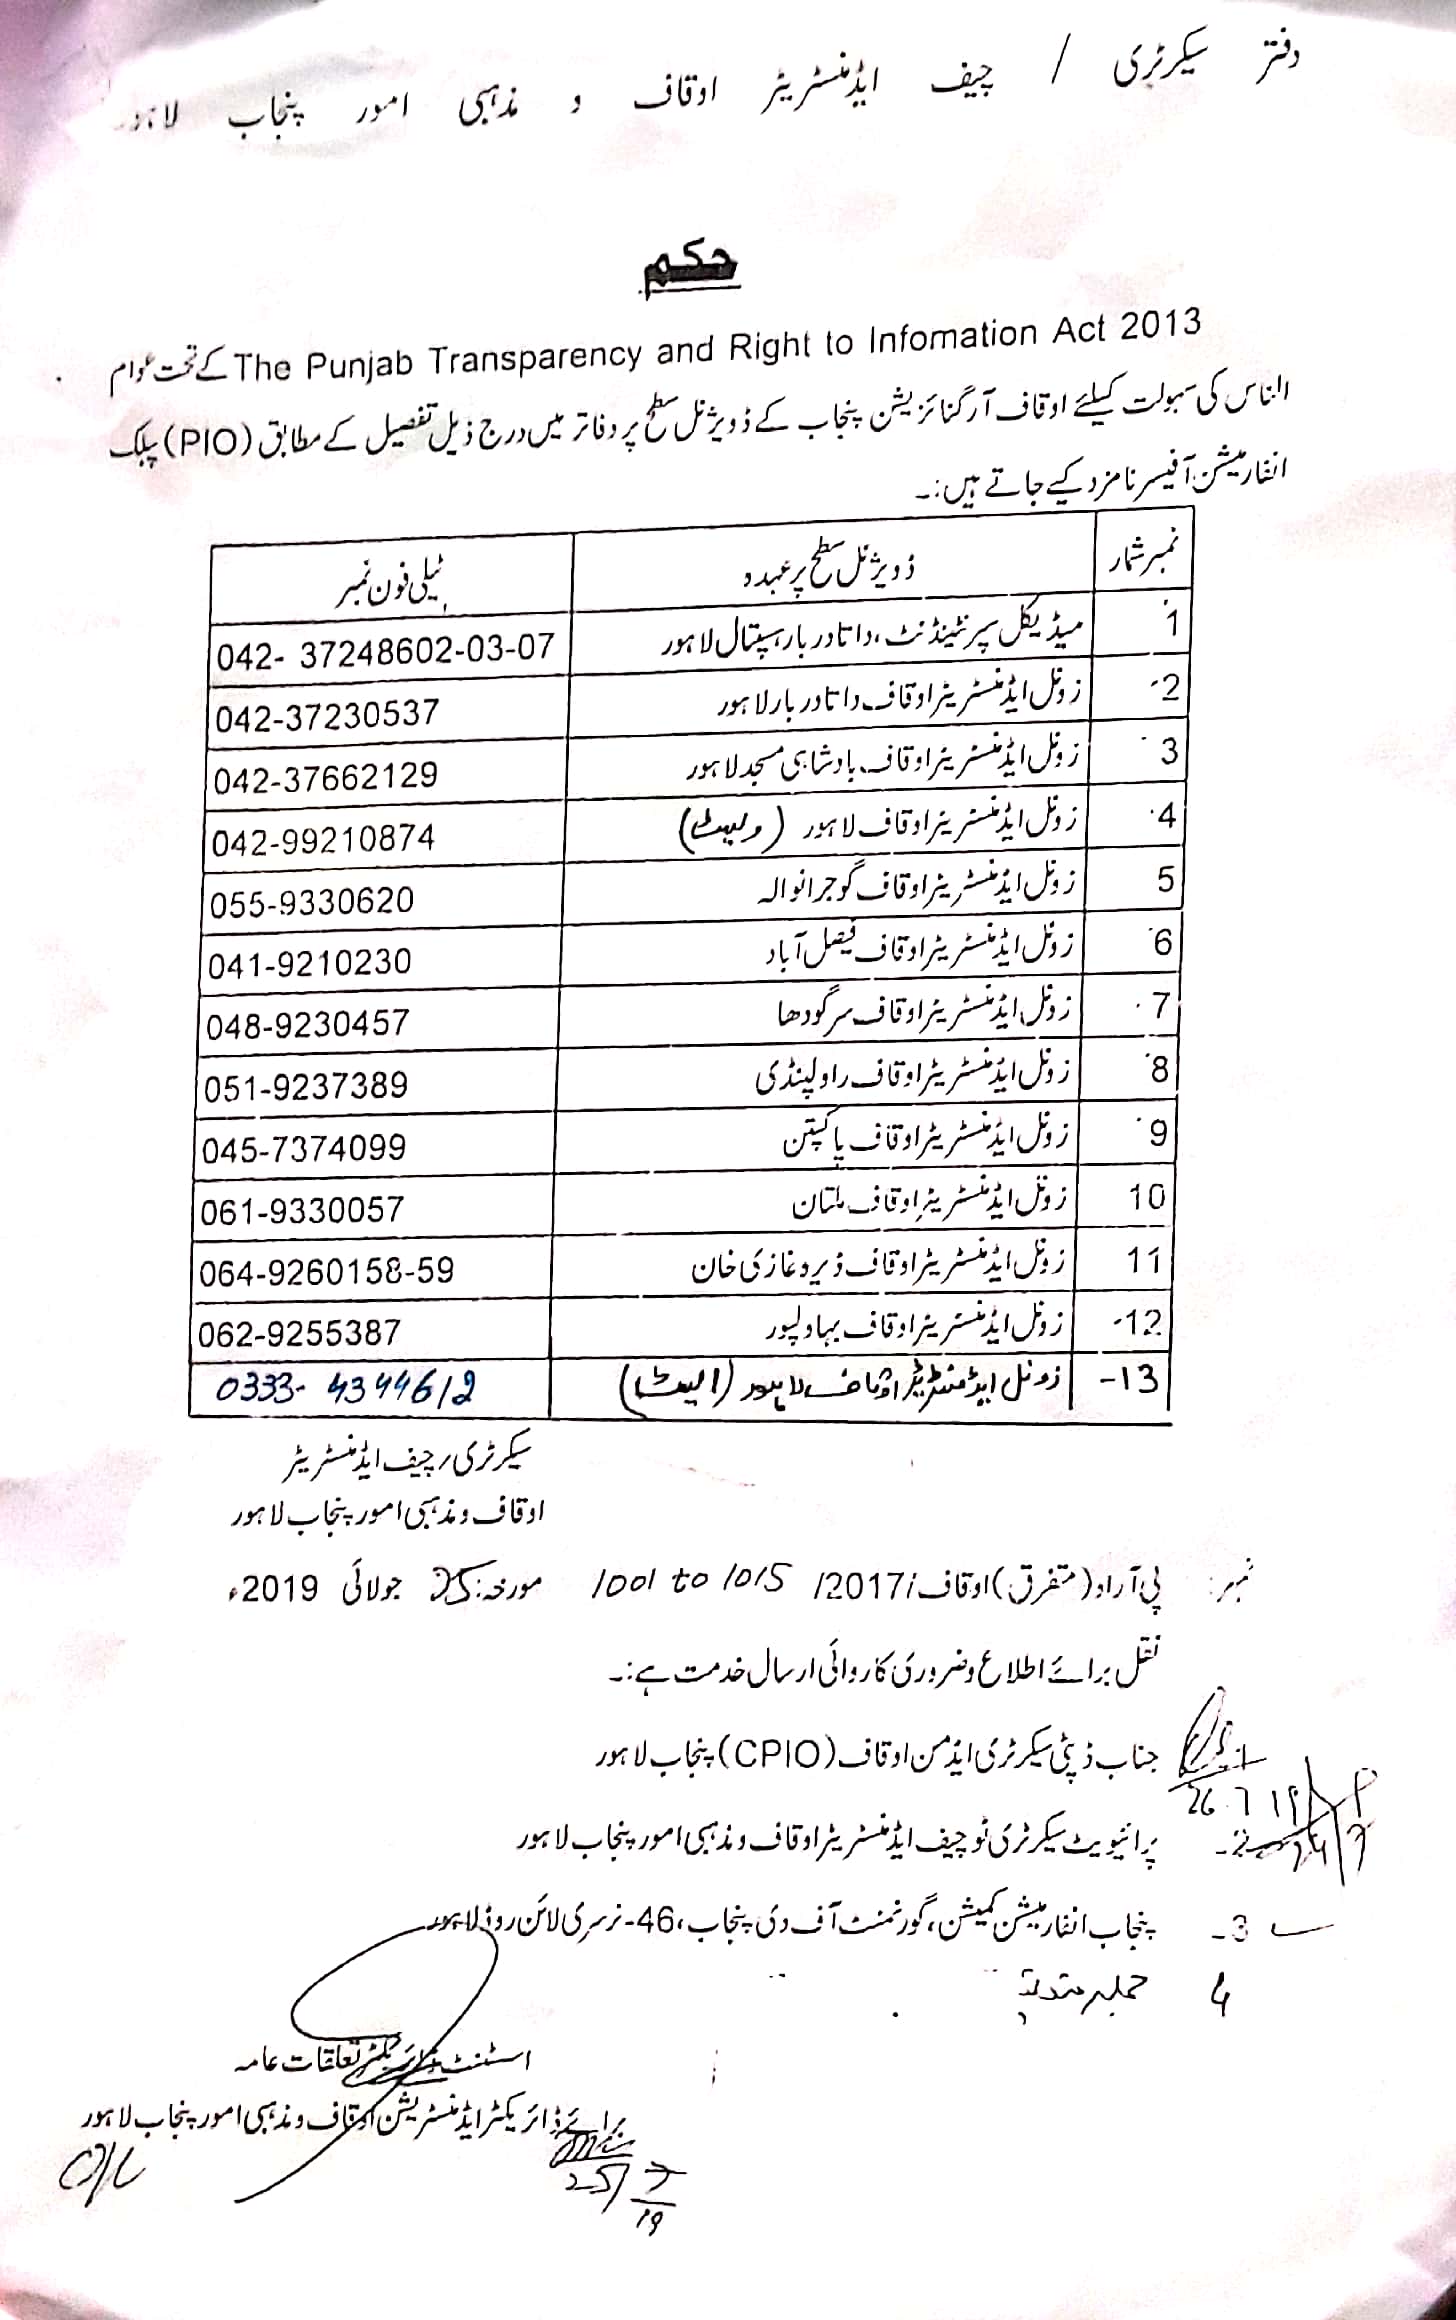 دفتر سیکرٹری / چیف ایڈمنسٹریٹر اوقاف و مذہبی امور پنجاب لاہور
حکم
The Punjab Transparency and Right to Infomation Act 2013 کے تحت عوام
الناس کی سہولت کیلئے اوقاف آرگنائزیشن پنجاب کے ڈویژنل سطح پر دفاتر میں درج ذیل تفصیل کے مطابق (PIO) پبلک
انفارمیشن آفیسر نامزد کیے جاتے ہیں:۔
نمبر شمار ڈویژنل سطح پر عہدہ ٹیلی فون نمبر
1 میڈیکل سپرنٹینڈنٹ، داتا دربار ہسپتال لاہور 042- 37248602-03-07
2- زونل ایڈمنسٹریٹر اوقاف داتا دربار لاہور 042-37230537
3 زونل ایڈمنسٹریٹر اوقاف بادشاہی مسجد لاہور 042-37662129
4 زونل ایڈمنسٹریٹر اوقاف لاہور (ویسٹ) 042-99210874
5 زونل ایڈمنسٹریٹر اوقاف گوجرانوالہ 055-9330620
6 زونل ایڈمنسٹریٹر اوقاف فیصل آباد 041-9210230
7 زونل ایڈمنسٹریٹر اوقاف سرگودھا 048-9230457
8 زونل ایڈمنسٹریٹر اوقاف راولپنڈی 051-9237389
9 زونل ایڈمنسٹریٹر اوقاف پاکپتن 045-7374099
10 زونل ایڈمنسٹریٹر اوقاف ملتان 061-9330057
11 زونل ایڈمنسٹریٹر اوقاف ڈیرہ غازی خان 064-9260158-59
12- زونل ایڈمنسٹریٹر اوقاف بہاولپور 062-9255387
13- زونل ایڈمنسٹریٹر اوقاف لاہور (ایسٹ) 0333- 4344612
سیکرٹری / چیف ایڈمنسٹریٹر
اوقاف و مذہبی امور پنجاب لاہور
نمبر: پی آر او (متفرق) اوقاف / 2017/ 1001 to 1015 مورخہ: 25 جولائی 2019ء
نقل برائے اطلاع و ضروری کاروائی ارسال خدمت ہے:۔
1- جناب ڈپٹی سیکرٹری ایڈمن اوقاف (CPIO) پنجاب لاہور
26 7 19
2- پرائیویٹ سیکرٹری ٹو چیف ایڈمنسٹریٹر اوقاف و مذہبی امور پنجاب لاہور
3- پنجاب انفارمیشن کمیشن، گورنمنٹ آف دی پنجاب، 46-نرسری لائن روڈ لاہور
4 جملہ
اسسٹنٹ ڈائریکٹر تعلقات عامہ
برائے ڈائریکٹر ایڈمنسٹریشن اوقاف و مذہبی امور پنجاب لاہور
O/C
25/7/19